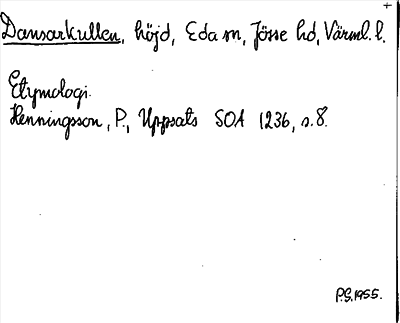 Dansarkullen, höjd, Eda sn, Jösse hd, Värml. l.
Etymologi.
Henningsson, P., Uppsats SOA 1236, s. 8.
P.G. 1955.